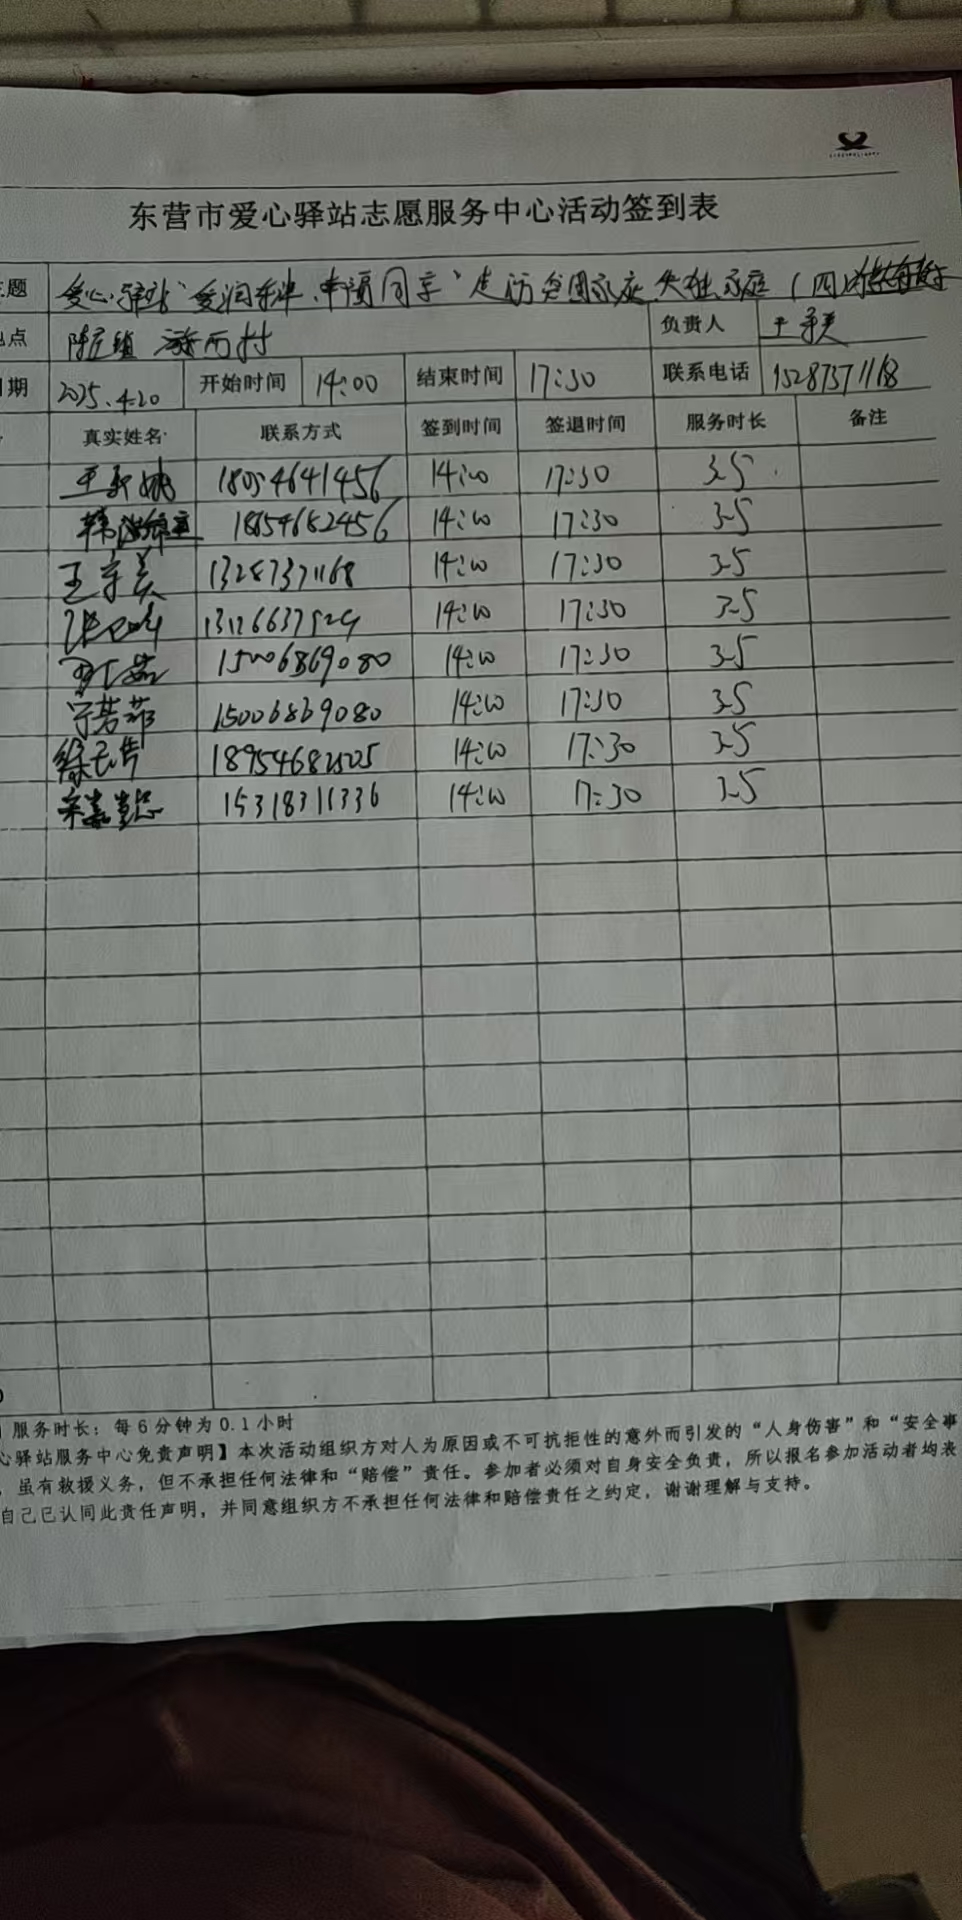 东营市爱心驿站志愿服务中心活动签到表
题 爱心驿站“爱润东津 幸福同享”走访贫困家庭 失独家庭 (四)
点 陈庄镇 西村 负责人 王 美
期 2025.4.20 开始时间 14:00 结束时间 17:30 联系电话 15287371168
真实姓名 联系方式 签到时间 签退时间 服务时长 备注
王 姚 18054641456 14:00 17:30 3.5
韩 18654682456 14:00 17:30 3.5
王 美 13287371168 14:00 17:30 3.5
14:00 17:30 3.5
15006869080 14:00 17:30 3.5
宁芳茹 15006869080 14:00 17:30 3.5
徐 18954682525 14:00 17:30 3.5
宋嘉 15318311336 14:00 17:30 3.5
服务时长：每6分钟为0.1小时
心驿站服务中心免责声明】本次活动组织方对人为原因或不可抗拒性的意外而引发的“人身伤害”和“安全事
，虽有救援义务，但不承担任何法律和“赔偿”责任。参加者必须对自身安全负责，所以报名参加活动者均表
自己已认同此责任声明，并同意组织方不承担任何法律和赔偿责任之约定，谢谢理解与支持。